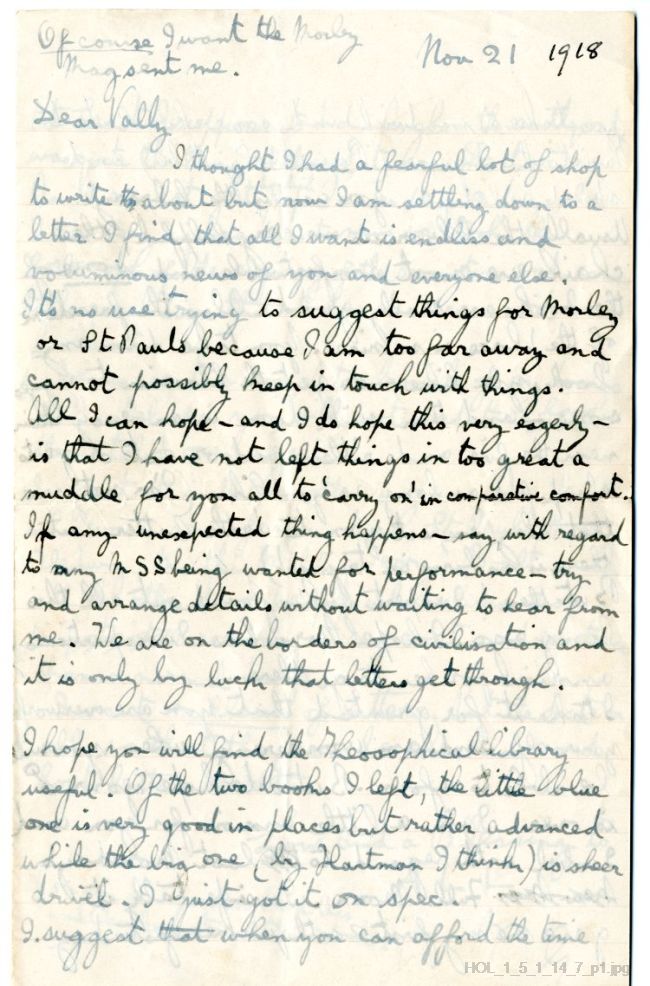 Of course I want the Morley
Mag sent me.
Nov 21 1918
Dear Vally
I thought I had a fearful lot of shop
to write about but now I am settling down to a
letter I find that all I want is endless and
voluminous news of you and everyone else.
It's no use trying to suggest things for Morley
or St Pauls because I am too far away and
cannot possibly keep in touch with things.
All I can hope – and I do hope this very eagerly –
is that I have not left things in too great a
muddle for you all to 'carry on' in comparative comfort.
If any unexpected thing happens – say with regard
to my MSS being wanted for performance – try
and arrange details without waiting to hear from
me. We are on the borders of civilisation and
it is only by luck that letters get through.
I hope you will find the Theosophical library
useful. Of the two books I left, the little blue
one is very good in places but rather advanced
while the big one (by Hartman I think) is sheer
drivel. I just got it on spec.
I suggest that when you can afford the time
HOL_1_5_1_14_7_p1.jpg